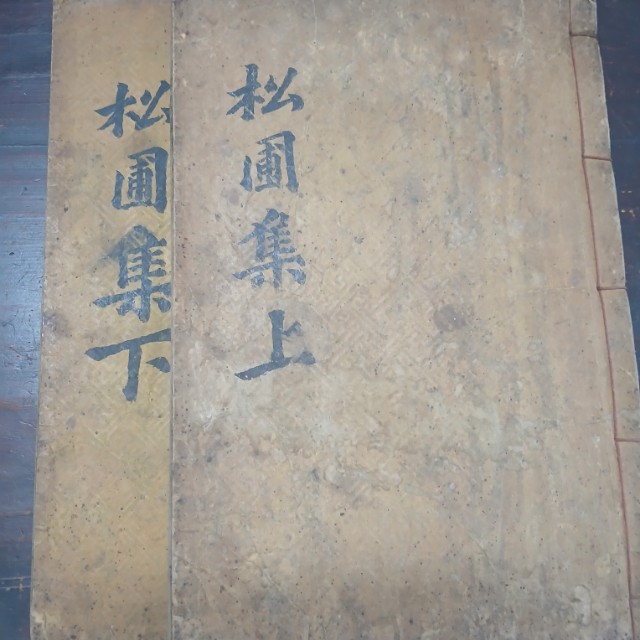 松圃集上
松圃集下